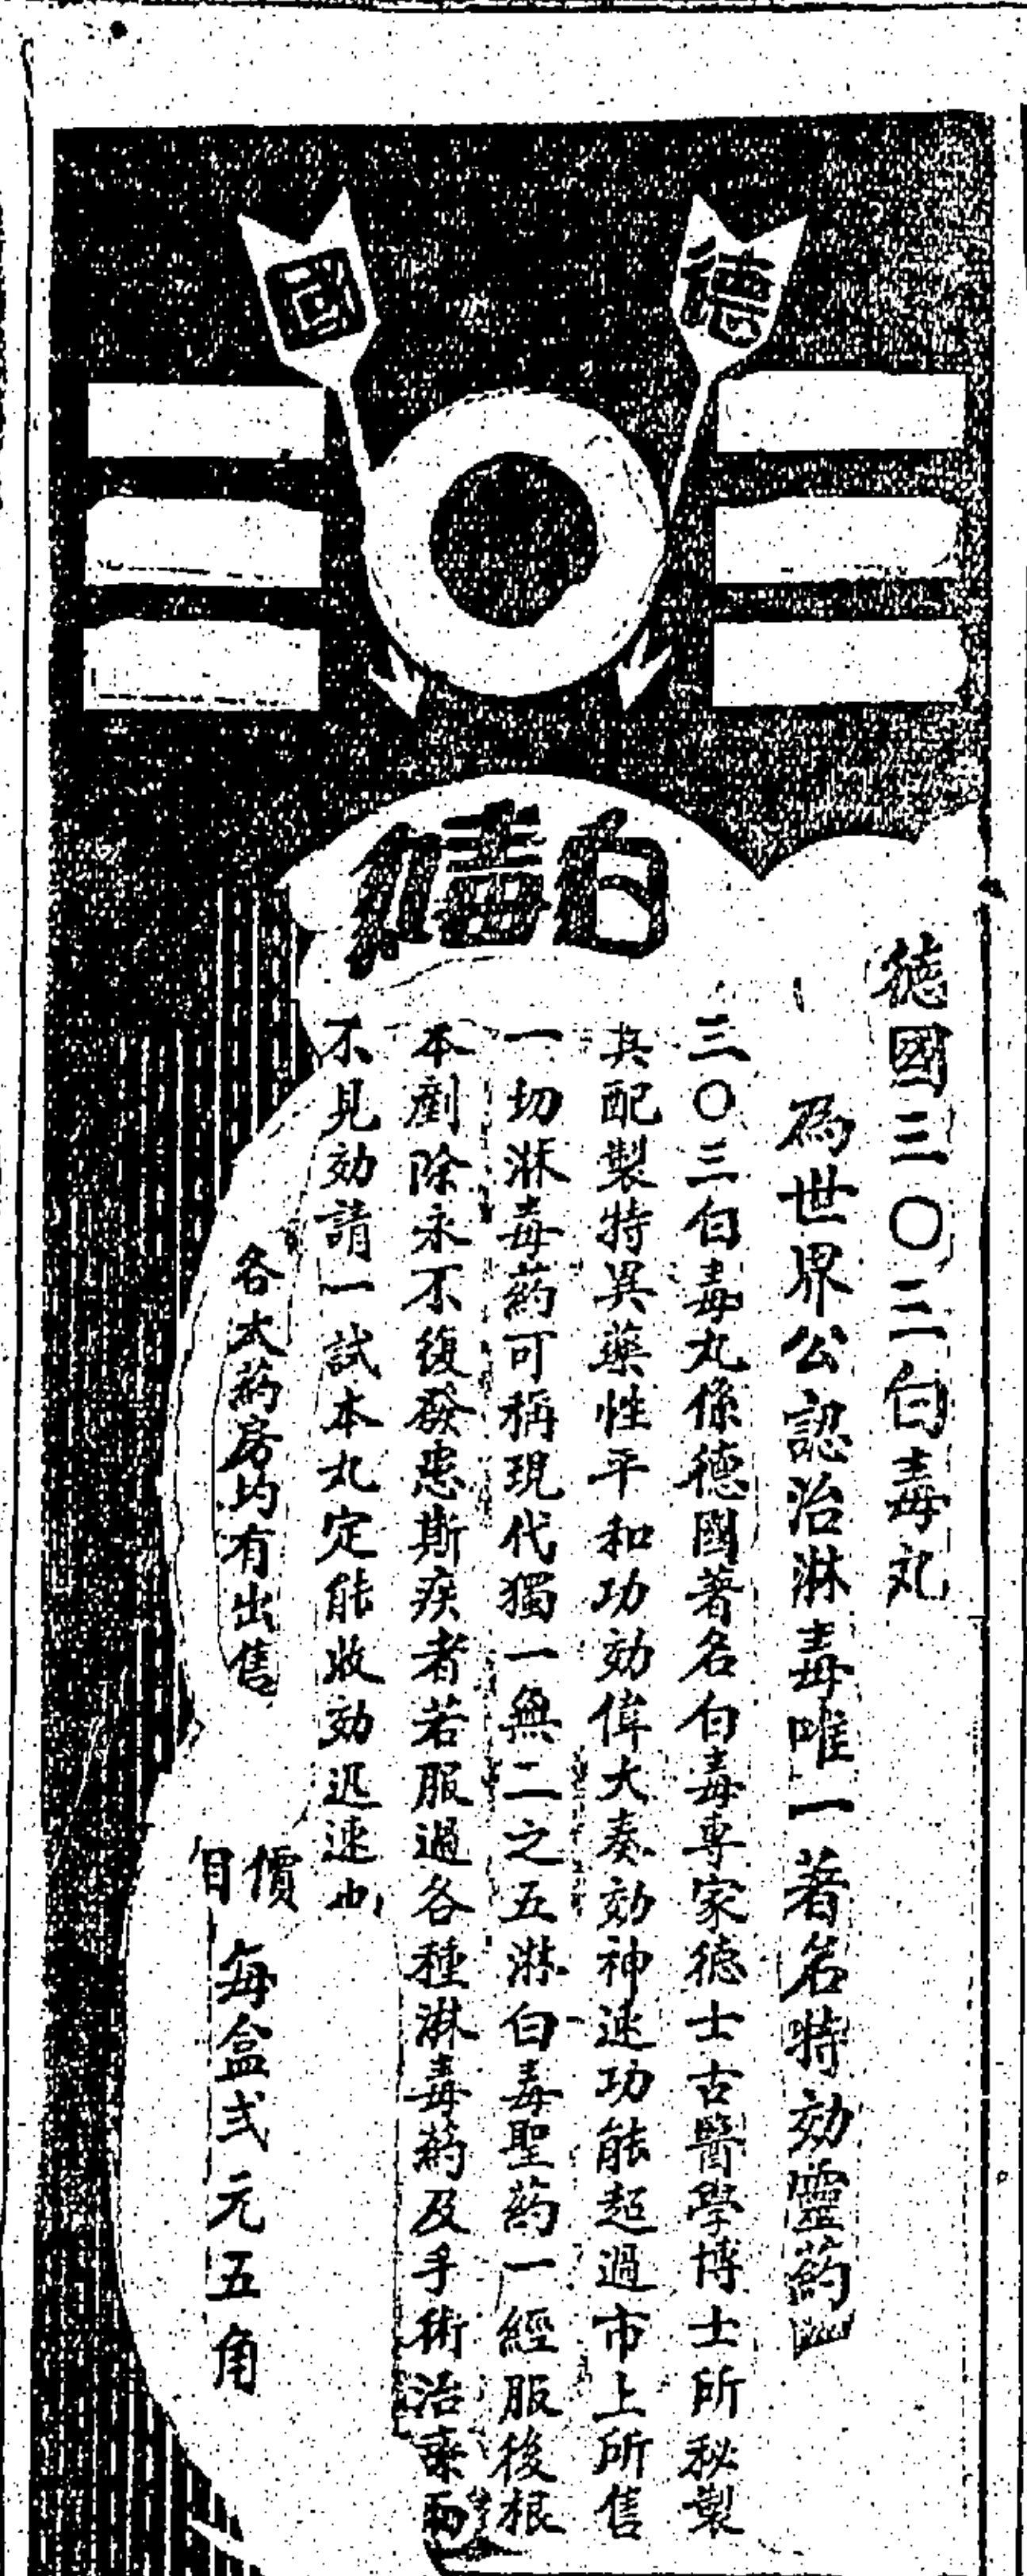 德國
三〇三
白毒丸
德國三〇三白毒丸
為世界公認治淋毒唯一著名特効靈葯
三〇三白毒丸係德國著名白毒專家德士古醫學博士所秘製
其配製特異藥性平和功効偉大奏効神速功能超過市上所售
一切淋毒葯可稱現代獨一無二之五淋白毒聖葯一經服後根
本剷除永不復發患斯疾者若服過各種淋毒葯及手術治療而
不見効請一試本丸定能收効迅速也
各大葯房均有出售
價目 每盒弍元五角